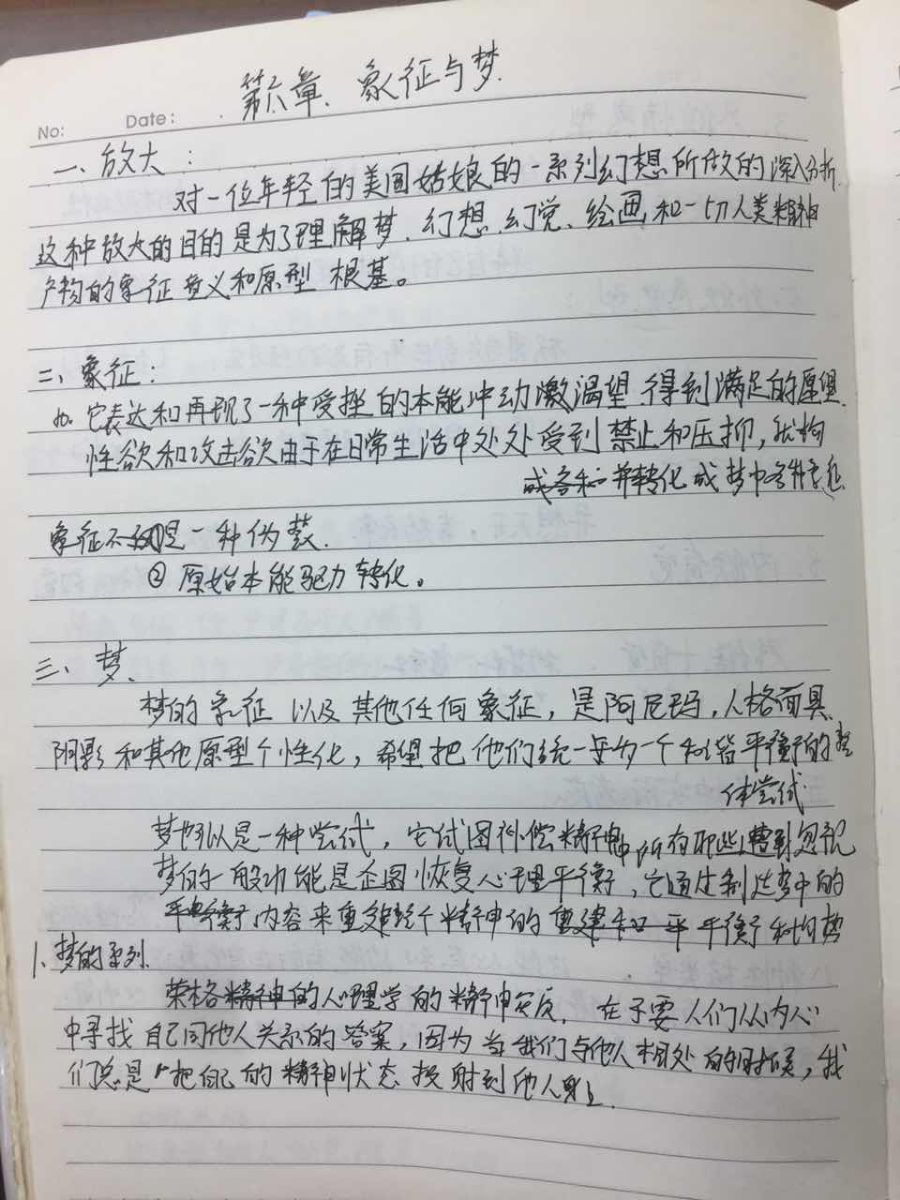 第六章、象征与梦
No: Date:
一、放大：
对一位年轻的美国姑娘的一系列幻想所做的深入分析.
这种放大的目的是为了理解梦、幻想、幻觉、绘画和一切人类精神
产物的象征意义和原型根基。
二、象征：
它表达和再现了一种受挫的本能冲动激渴望得到满足的愿望.
性欲和攻击欲由于在日常生活中处处受到禁止和压抑，
或各种并转化成梦中各种
象征不仅是一种伪装.
② 原始本能驱力转化。
三、梦、
梦的象征以及其他任何象征，是阿尼玛，人格面具、
阴影和其他原型个性化，希望把他们统一为一个和谐平衡的整
体尝试
梦所以是一种尝试，它试图补偿精神中所有那些遭到忽视
梦的一般功能是企图恢复心理平衡，它通过制造梦中的
平衡内容来重建整个精神的重建和平平衡和均势
1、梦的系列.
荣格精神的心理学的精神实质，在于要人们从内心
中寻找自己同他人关系的答案，因为当我们与他人相处的时候，我
们总是"把自己的精神状态投射到他人身上.